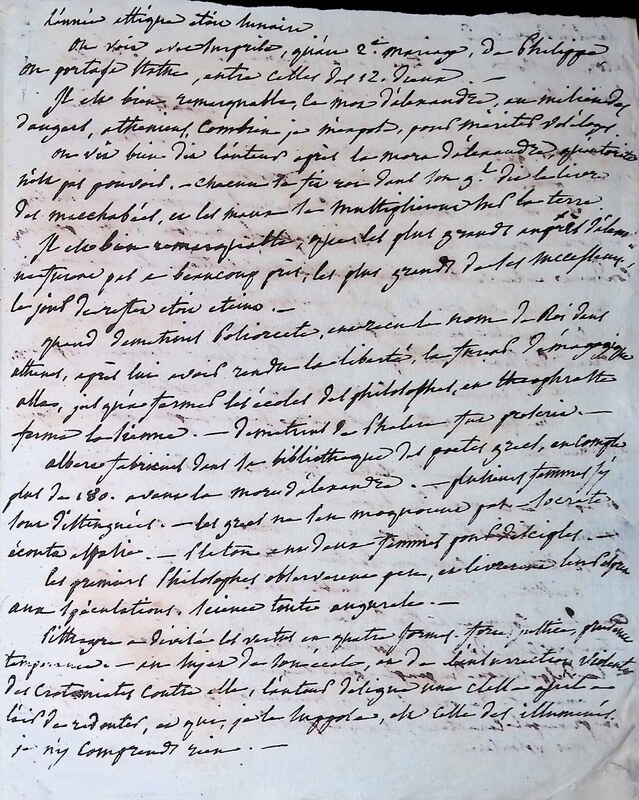 L'année attique etoit lunaire
on voit avec surprise, qu'au 2e. mariage, de Philippe
on portase statue, entre celles des 12. dieux. —
Il est bien remarquable, ce mot d'alexandre, au milieu des
dangers, atheniens, combien je m'expose, pour mériter vos éloges
on vit bien dit l'auteur après la mort d'alexandre, qu'autorité
n'est pas pouvoir. — chacun se fit roi dans son g.t dit le livre
des macchabées, et les maux se multiplierent sur la terre.
Il est bien remarquable, que les plus grands auprès d'alex
ne furent pas a beaucoup près, les plus grands de ses successeurs,
le jour de reflet etoit eteint. —
quand demetrius Poliorcete, eut reçu le nom de Roi dans
athenes, après lui avoir rendu la liberté, la fureur démagogique
alla, jusqu'a fermer les écoles des philosophes, et theophraste
ferma la sienne. — Demetrius de Phalere fut proscrit. —
albert fabricius dans sa bibliotheque des poetes grecs, en compte
plus de 180. avant la mort d'alexandre. — plusieurs femmes s'y
sont distinguées. — les grecs ne s'en moquoient pas. Socrate
écouta aspasie. — Platon eut deux femmes pour disciples. —
Les premiers Philosophes observerent peu, et livrerent leur
aux spéculations. science toute augurale —
Pithagore a divisé les vertus en quatre formes. force, justice, prudence
temperance. — au sujet de son école, et de l'insurrection violente
des Crotoniates contre elle, l'auteur designe une
de redouter, et que, je le suppose, est celle des illuminés.
je n'y comprends rien. —